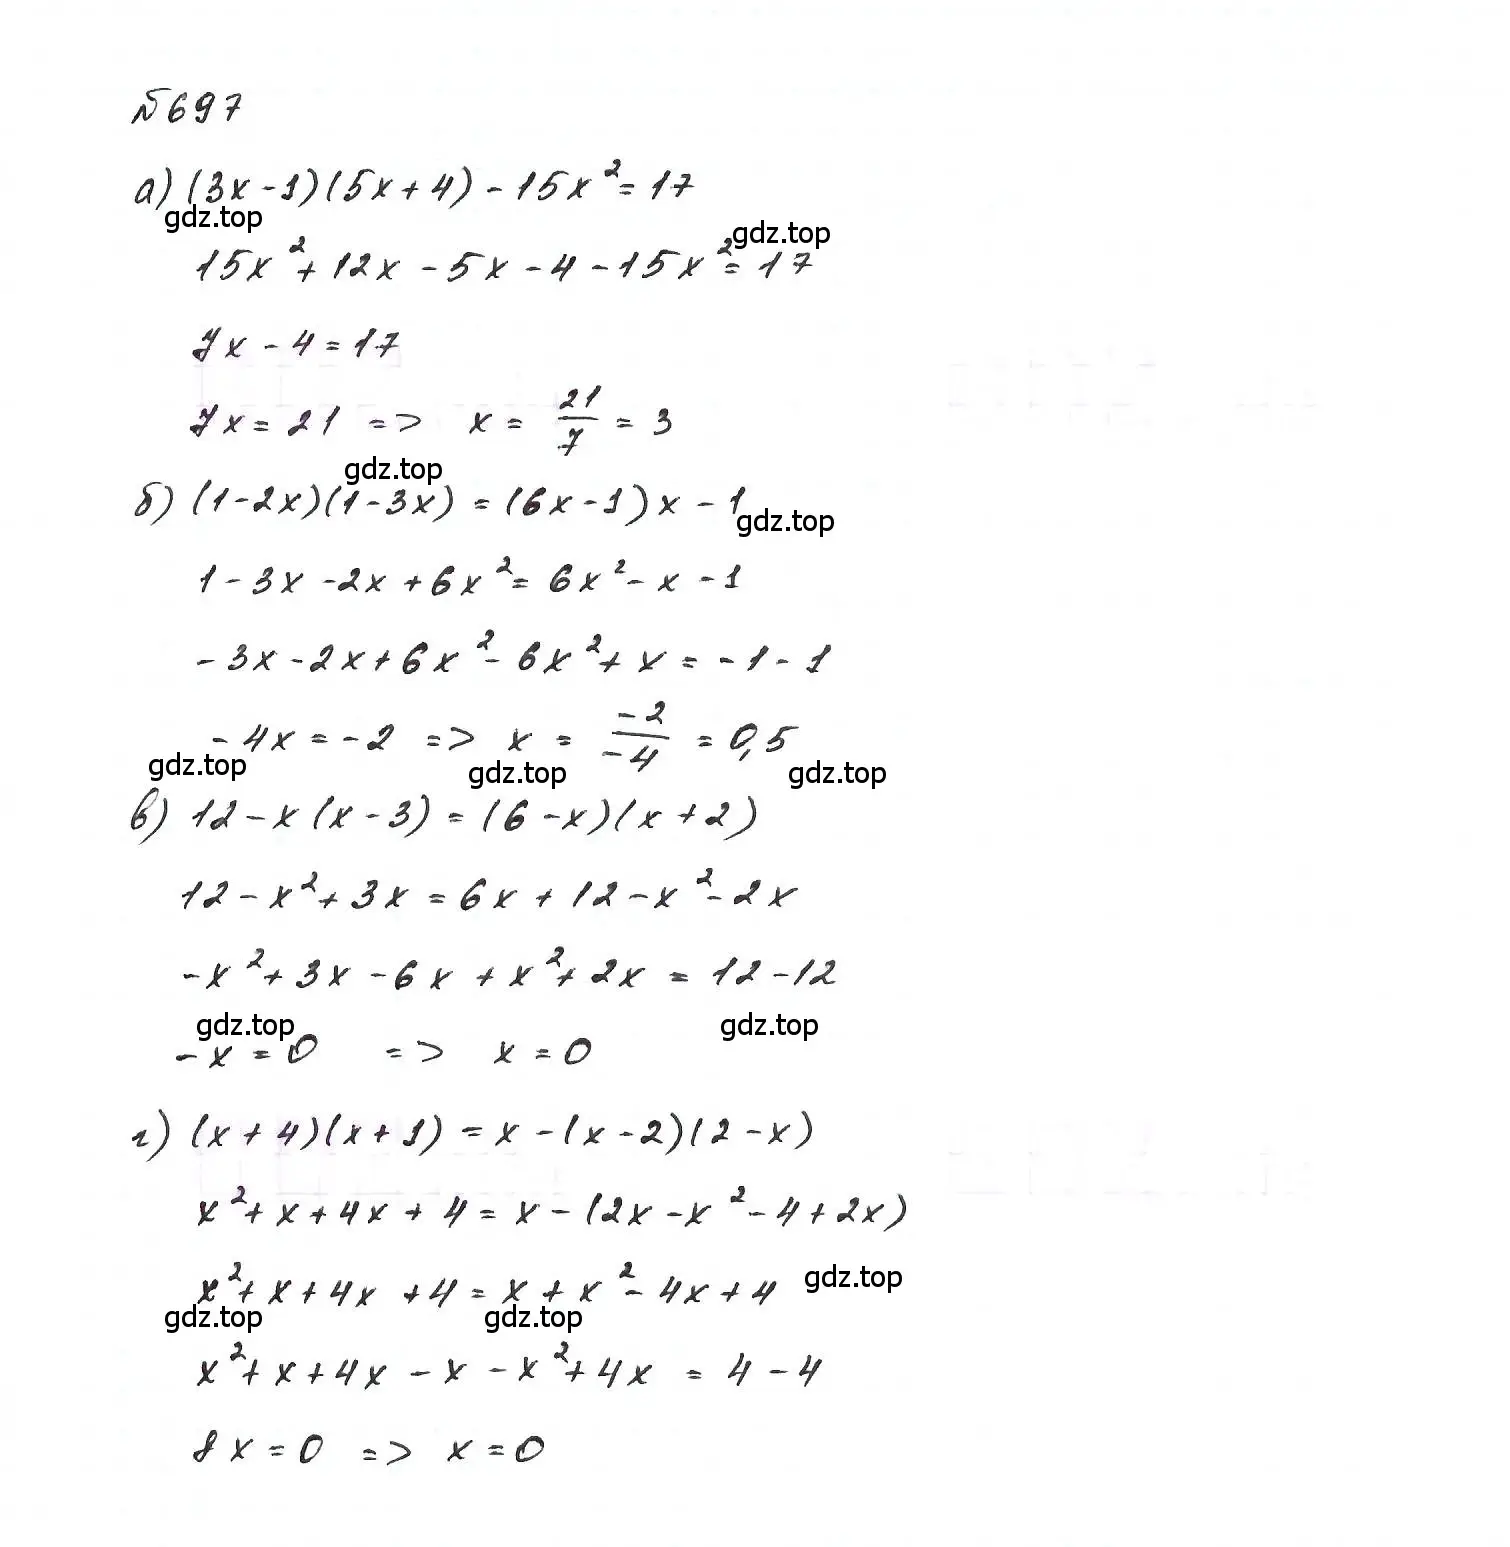 №697
а) (3x-1)(5x+4)-15x²=17
gdz.top
gdz.top
15x²+12x-5x-4-15x²=17
7x-4=17
7x=21 => x=21/7=3
gdz.top
б) (1-2x)(1-3x)=(6x-1)x-1
gdz.top
1-3x-2x+6x²=6x²-x-1
-3x-2x+6x²-6x²+x=-1-1
-4x=-2 => x=-2/-4=0,5
gdz.top gdz.top gdz.top
в) 12-x(x-3)=(6-x)(x+2)
12-x²+3x=6x+12-x²-2x
-x²+3x-6x+x²+2x=12-12
gdz.top gdz.top
-x=0 => x=0
г) (x+4)(x+1)=x-(x-2)(2-x)
x²+x+4x+4=x-(2x-x²-4+2x)
x²+x+4x+4=x+x²-4x+4
gdz.top
gdz.top gdz.top
x²+x+4x-x-x²+4x=4-4
8x=0 => x=0